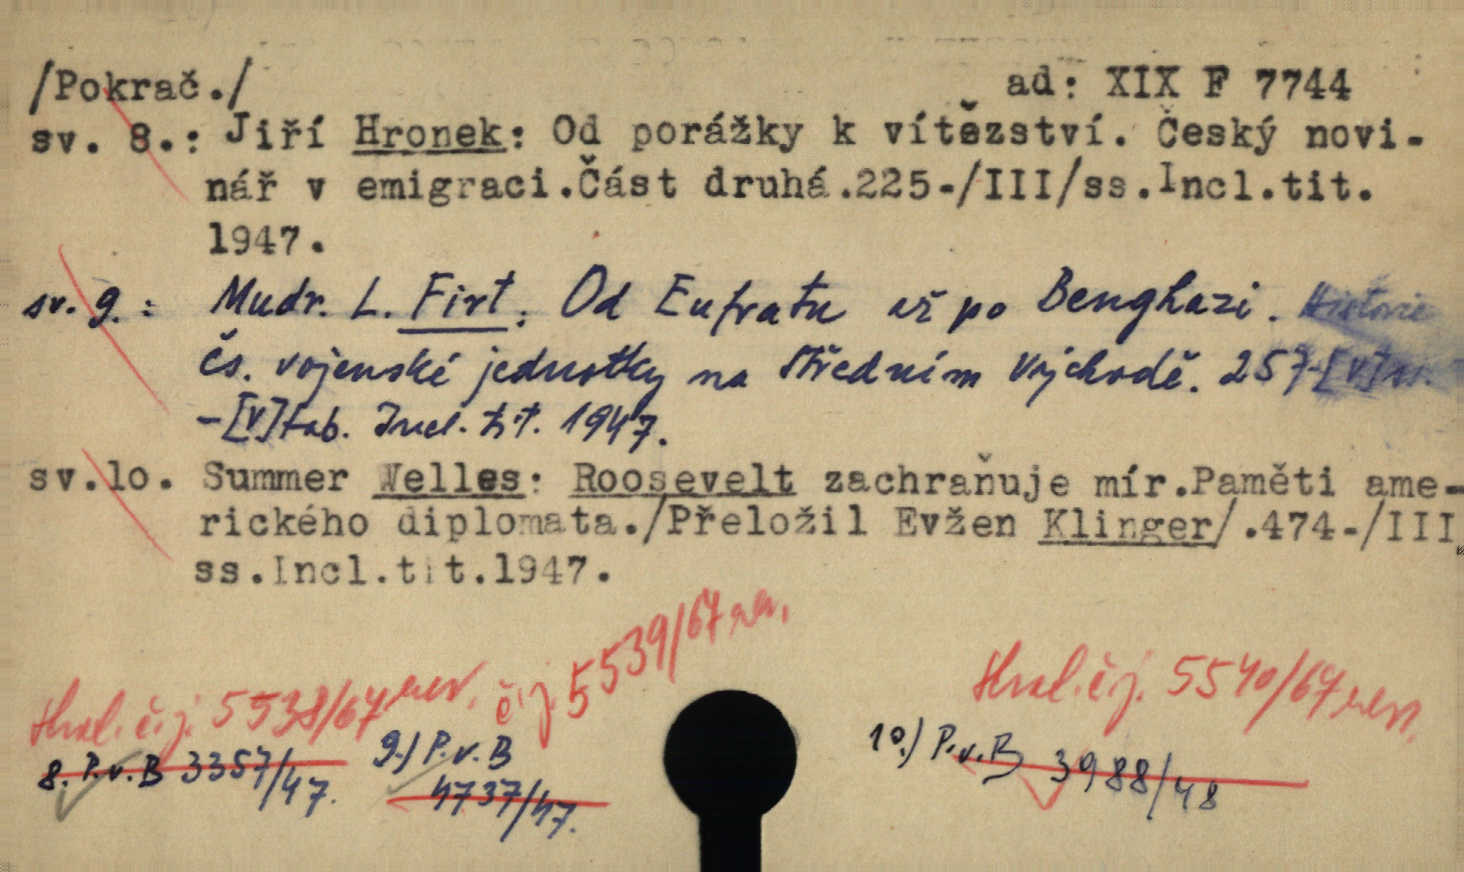 /Pokrač./ ad: XIX F 7744
sv. 8.: Jiří Hronek: Od porážky k vítězství. Český novi-
nář v emigraci.Část druhá.225-/III/ss.Incl.tit.
1947.
sv. 9.: Mudr. L. Firt: Od Eufratu až po Benghazi. Historie
čs. vojenské jednotky na Středním Východě. 257-[V]ss.
-[V]tab. Incl. tit. 1947.
sv.lo. Summer Welles: Roosevelt zachraňuje mír.Paměti ame-
rického diplomata./Přeložil Evžen Klinger/.474-/III
ss.Incl.tit.1947.
č.j. 5538/67 č.j. 5539/67 č.j. 5540/67
8. P.v.B 3357/47. 9.) P.v.B 4737/47. 10.) P.v.B 3988/48